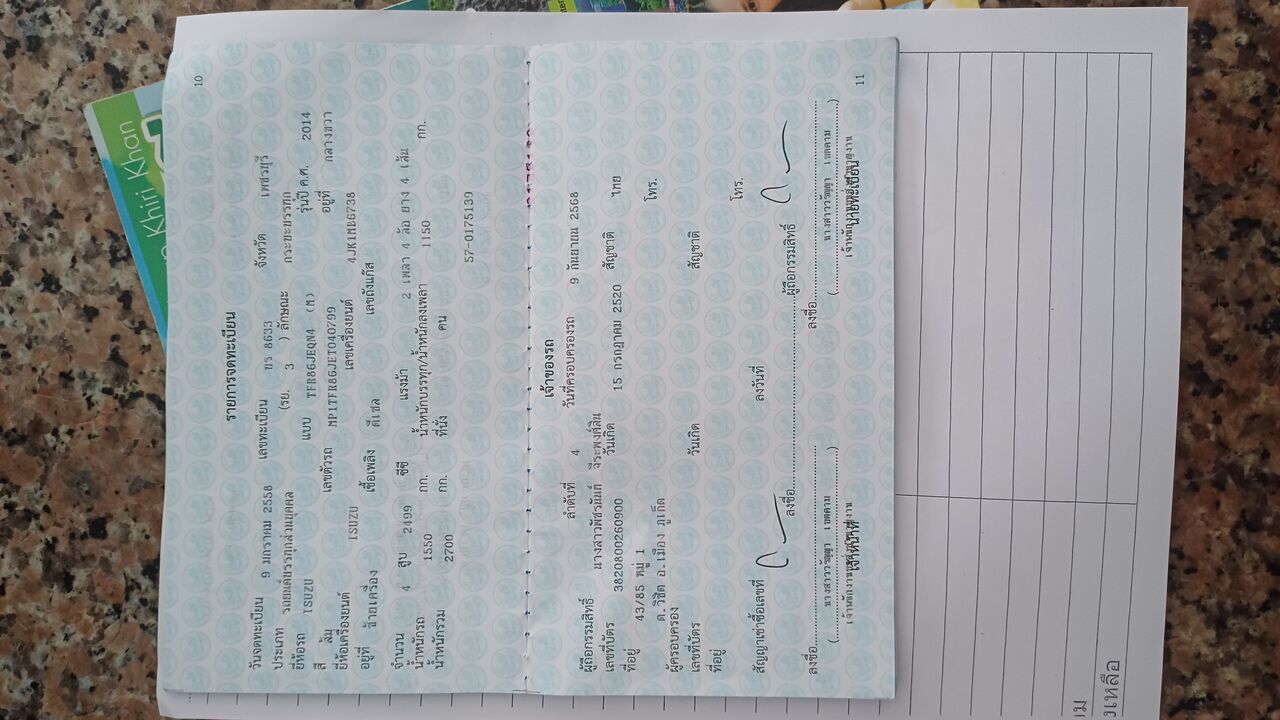 10
รายการจดทะเบียน
วันจดทะเบียน 9 มกราคม 2558 เลขทะเบียน 8633 จังหวัด เพชรบุรี
ประเภท รถยนต์บรรทุกส่วนบุคคล (รย. 3 ) ลักษณะ กระบะบรรทุก
ยี่ห้อรถ ISUZU แบบ TFR86JEQN4 (M) รุ่นปี ค.ศ. 2014
สี ส้ม เลขตัวรถ MP1TFR86JET040799 อยู่ที่ กลางขวา
ยี่ห้อเครื่องยนต์ ISUZU เลขเครื่องยนต์ 4JK1MB6738
อยู่ที่ ซ้ายเครื่อง เชื้อเพลิง ดีเซล เลขถังแก๊ส
จำนวน 4 สูบ 2499 ซีซี แรงม้า 2 เพลา 4 ล้อ ยาง 4 เส้น
น้ำหนักรถ 1550 กก. น้ำหนักบรรทุก/น้ำหนักลงเพลา 1150 กก.
น้ำหนักรวม 2700 กก. ที่นั่ง คน
57-0175139
เจ้าของรถ
ลำดับที่ 4 วันที่ครอบครองรถ 9 กันยายน 2568
ผู้ถือกรรมสิทธิ์ นางสาวพัชรนันท์ จีระพงศ์สิน
เลขที่บัตร 3820800260900 วันเกิด 15 กรกฎาคม 2520 สัญชาติ ไทย
ที่อยู่ 43/85 หมู่ 1 โทร.
ต.วิชิต อ.เมือง ภูเก็ต
ผู้ครอบครอง
เลขที่บัตร วันเกิด สัญชาติ
ที่อยู่ โทร.
สัญญาเช่าซื้อเลขที่ ลงวันที่
ลงชื่อ ผู้ถือกรรมสิทธิ์
ลงชื่อ ลงชื่อ
เจ้าหน้าที่ นายทะเบียน
11
Khiri Khan